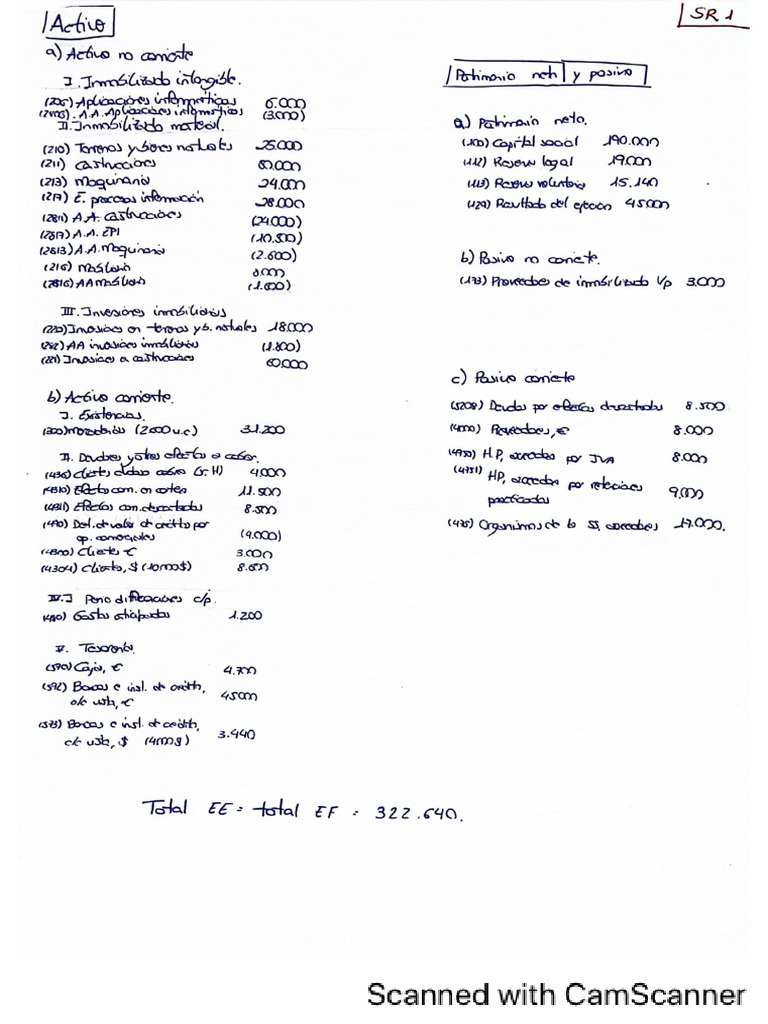 Activo
SR 1
a) Activo no corriente
I. Inmovilizado intangible.
(206) Aplicaciones informáticas 6.000
(2806). A.A. Aplicaciones informáticas (3.000)
II. Inmovilizado material.
(210) Terrenos y bienes naturales 25.000
(211) Construcciones 80.000
(213) Maquinaria 24.000
(217) E. procesos información 28.000
(2811) A.A. Construcciones (24.000)
(2817) A.A. EPI (10.500)
(2813) A.A. Maquinaria (2.600)
(216) Mobiliario 8.000
(2816) AA Mobiliario (1.600)
III. Inversiones inmobiliarias
(220) Inversiones en terrenos y b. naturales 18.000
(282) AA inversiones inmobiliarias (1.800)
(221) Inversiones en construcciones 60.000
b) Activo corriente.
I. Existencias.
(300) Mercaderías (2000 u.c) 31.200
II. Deudores y otros efectos a cobrar.
(436) clientes dudoso cobro (Sr. H) 4.000
(4310) Efectos com. en cartera 11.500
(4311) Efectos com. descontados 8.500
(490) Det. de valor de crédito por
op. comerciales (4.000)
(4300) Clientes € 3.000
(4304) Clientes, $ (10000$) 8.600
IV. I Periodificaciones c/p.
(480) Gastos anticipados 1.200
V. Tesorería.
(570) Caja, € 4.700
(572) Bancos e inst. de crédito,
c/c vista, € 45000
(573) Bancos e inst. de crédito,
c/c vista, $ (4000$) 3.440
Patrimonio neto y pasivo
a) Patrimonio neto.
(100) Capital social 190.000
(112) Reserva legal 19.000
(113) Reserva voluntaria 15.140
(129) Resultado del ejercicio 45.000
b) Pasivo no corriente.
(173) Proveedores de inmovilizado l/p 3.000
c) Pasivo corriente
(5208) Deudas por efectos descontados 8.500
(4000) Proveedores, € 8.000
(4750) H.P, acreedora por IVA 8.000
(4751) HP, acreedora por retenciones
practicadas 9.000
(476) Organismos de la SS, acreedores 17.000.
Total EE = total EF = 322.640.
Scanned with CamScanner